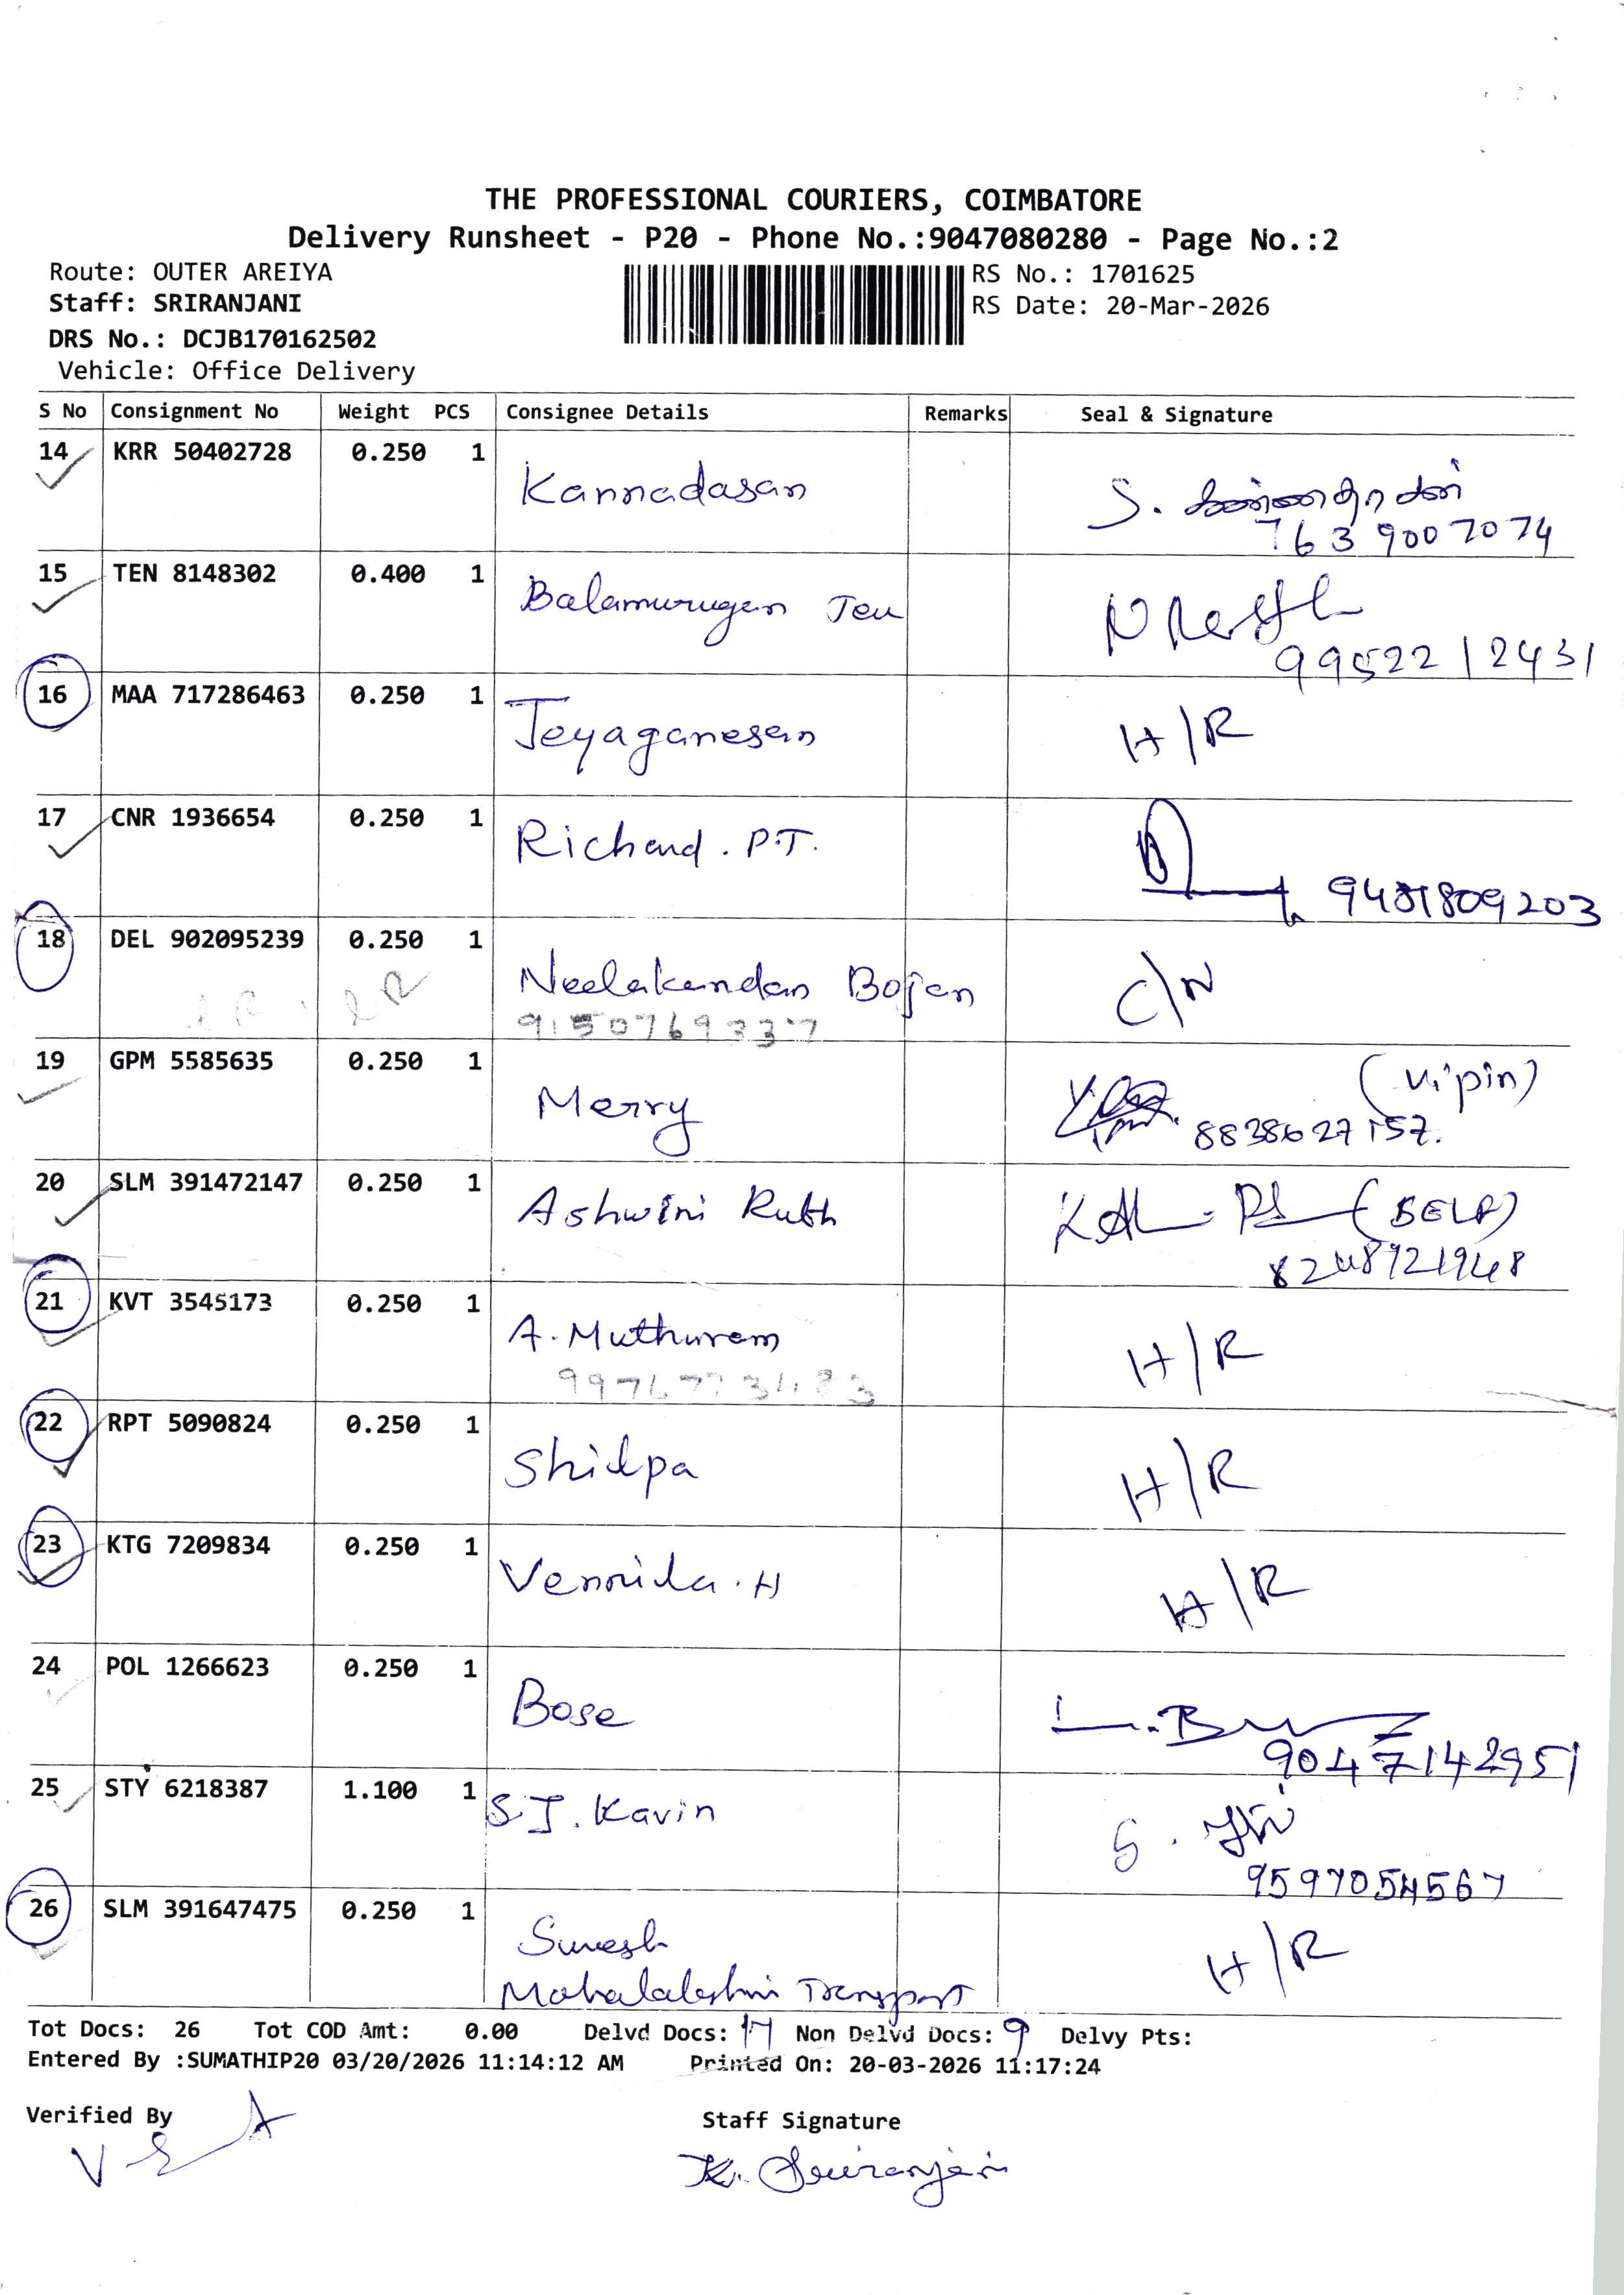 THE PROFESSIONAL COURIERS, COIMBATORE
Delivery Runsheet - P20 - Phone No.:9047080280 - Page No.:2
Route: OUTER AREIYA
Staff: SRIRANJANI
DRS No.: DCJB170162502
Vehicle: Office Delivery
RS No.: 1701625
RS Date: 20-Mar-2026
S No Consignment No Weight PCS Consignee Details Remarks Seal & Signature
14 KRR 50402728 0.250 1 Kannadasan S.
7639007074
15 TEN 8148302 0.400 1 Balamurugan Jeu
9952212431
16 MAA 717286463 0.250 1 Jeyaganesan H/R
17 CNR 1936654 0.250 1 Richard. P.T.
18 DEL 902095239 0.250 1 Neelakandan Bojan C\N
9150769337
19 GPM 5585635 0.250 1 Merry (Vipin)
8838627157.
20 SLM 391472147 0.250 1 Ashwini Ruth (SELF)
8248721948
21 KVT 3545173 0.250 1 A. Muthuram H/R
22 RPT 5090824 0.250 1 Shilpa H/R
23 KTG 7209834 0.250 1 Vennila. H H/R
24 POL 1266623 0.250 1 Bose
9047142951
25 STY 6218387 1.100 1 S.J. Kavin S.
9597054567
26 SLM 391647475 0.250 1 Suresh H/R
Mahalakshmi Transport
Tot Docs: 26 Tot COD Amt: 0.00 Delvd Docs: 17 Non Delvd Docs: 9 Delvy Pts:
Entered By :SUMATHIP20 03/20/2026 11:14:12 AM Printed On: 20-03-2026 11:17:24
Verified By Staff Signature
K. Sriranjani